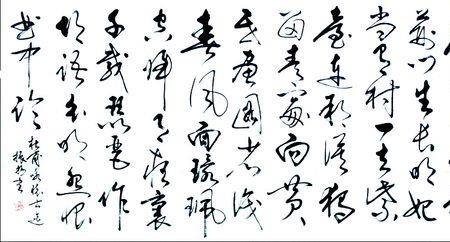 荊門生長明妃
尚有村一去紫
臺連朔漠獨
留青冢向黃
昏畫圖省識
春風面環珮
空歸月夜魂
千載琵琶作
胡語分明怨恨
曲中論
杜甫詠懷古迹